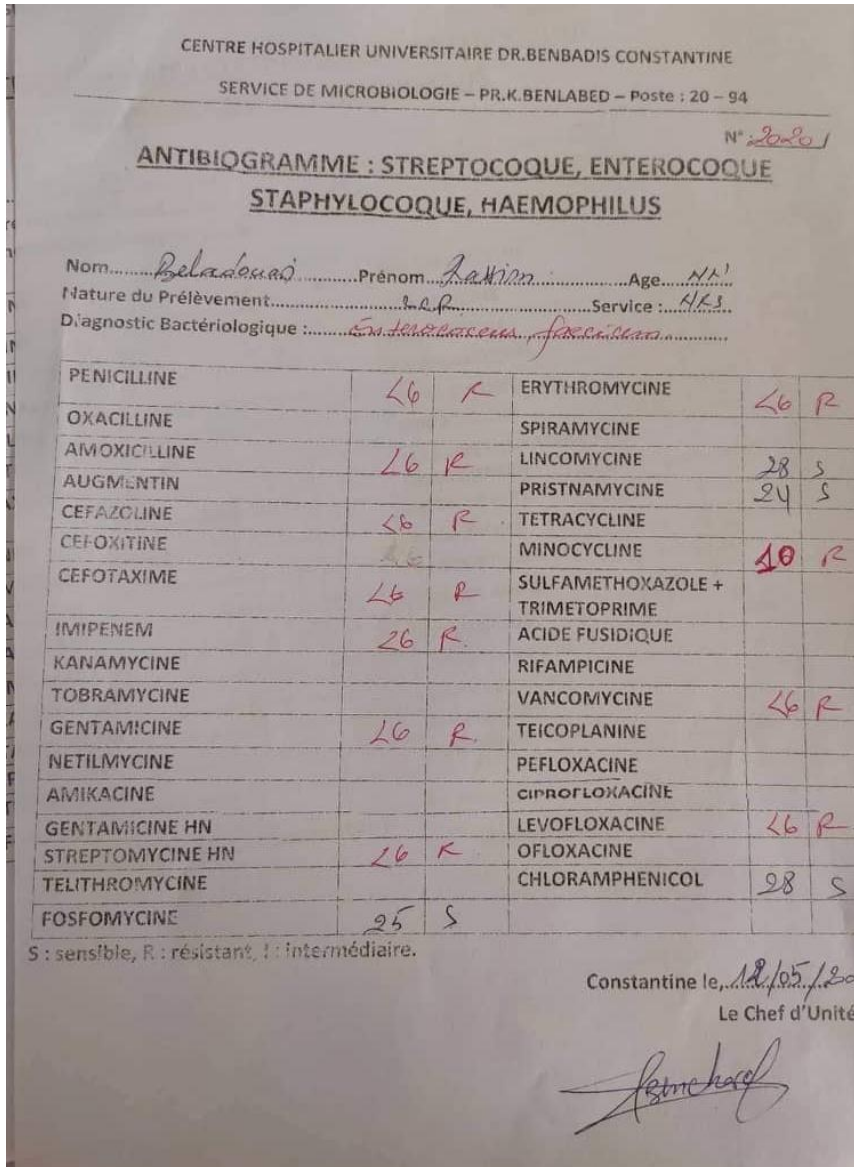 CENTRE HOSPITALIER UNIVERSITAIRE DR.BENBADIS CONSTANTINE
SERVICE DE MICROBIOLOGIE – PR.K.BENLABED – Poste : 20 – 94
N°
ANTIBIOGRAMME : STREPTOCOQUE, ENTEROCOQUE
STAPHYLOCOQUE, HAEMOPHILUS
Nom.........Prénom.........Age.........
Nature du Prélèvement.........Service :
Diagnostic Bactériologique : Enterococcus faecium
PENICILLINE <6 R ERYTHROMYCINE <6 R
OXACILLINE SPIRAMYCINE
AMOXICILLINE <6 R LINCOMYCINE 28 S
AUGMENTIN PRISTNAMYCINE 24 S
CEFAZOLINE <6 R TETRACYCLINE
CEFOXITINE MINOCYCLINE 10 R
CEFOTAXIME <6 R SULFAMETHOXAZOLE +
TRIMETOPRIME
IMIPENEM R ACIDE FUSIDIQUE
KANAMYCINE RIFAMPICINE
TOBRAMYCINE VANCOMYCINE <6 R
GENTAMICINE <6 R TEICOPLANINE
NETILMYCINE PEFLOXACINE
AMIKACINE CIPROFLOXACINE
GENTAMICINE HN LEVOFLOXACINE <6 R
STREPTOMYCINE HN R OFLOXACINE
TELITHROMYCINE CHLORAMPHENICOL 28 S
FOSFOMYCINE 25 S
S : sensible, R : résistant, I : intermédiaire.
Constantine le, 12/05/20
Le Chef d'Unité